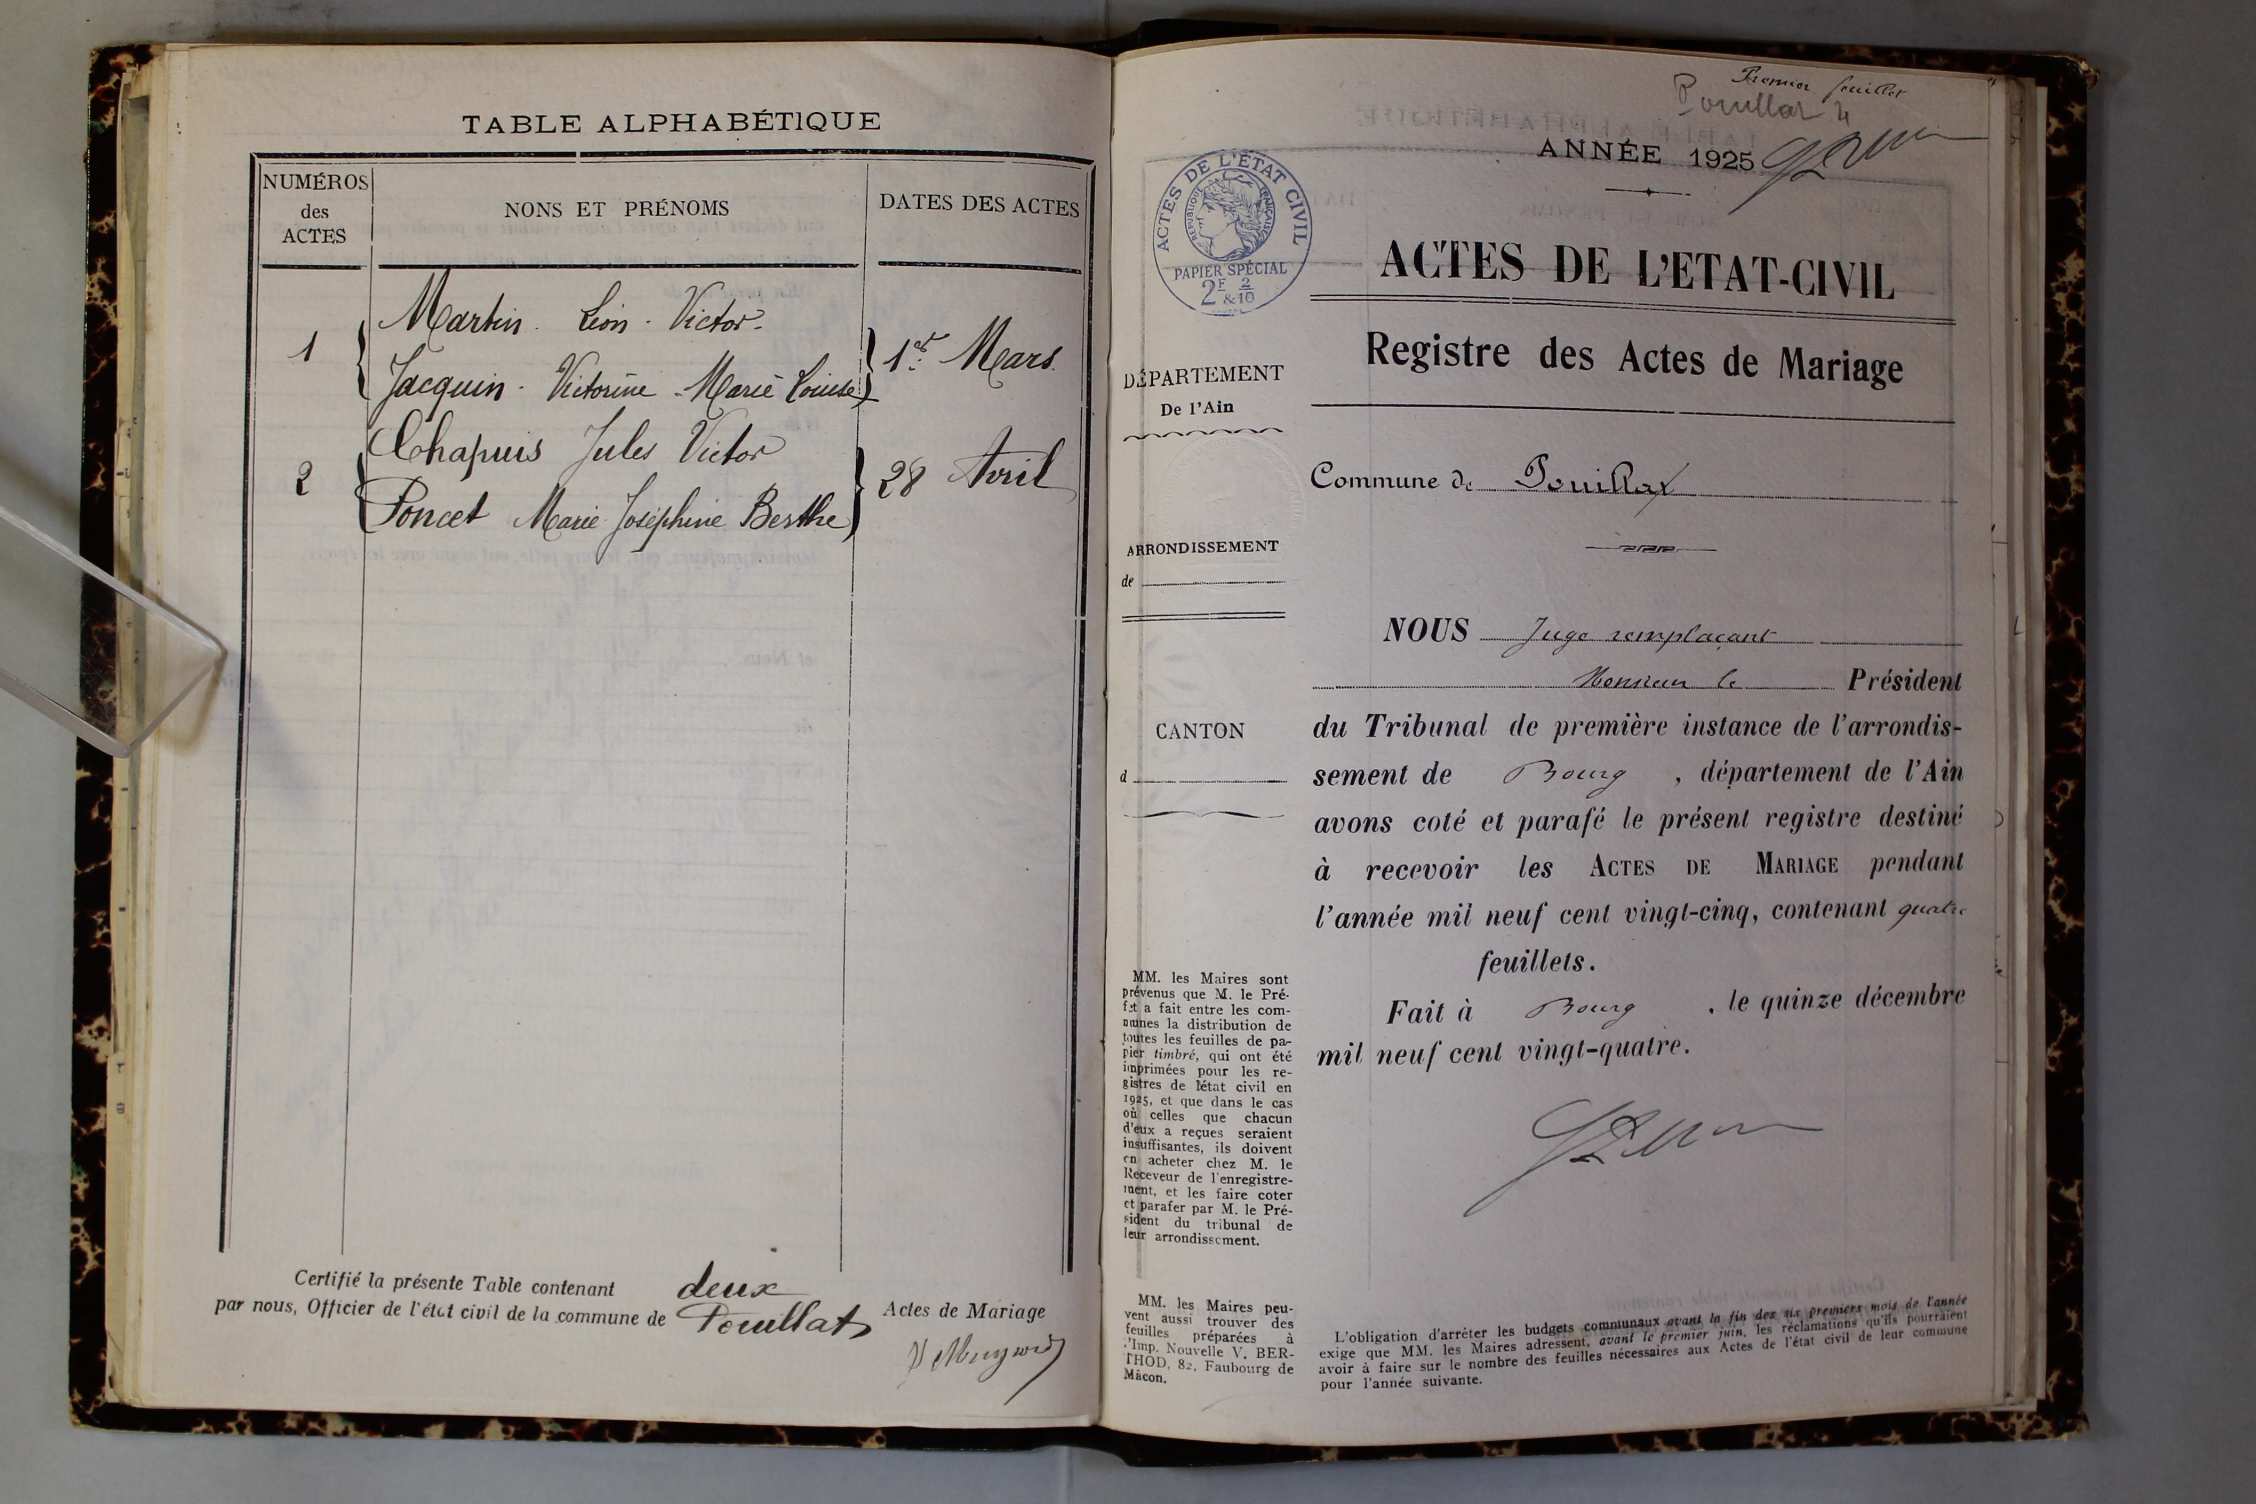 TABLE ALPHABÉTIQUE
NUMÉROS
des
ACTES
NONS ET PRÉNOMS
DATES DES ACTES
1
Martin. Léon. Victor.
Jacquin. Victorine. Marie Louise
1er Mars.
2
Chapuis Jules Victor
Poncet Marie Joséphine Berthe
28 Avril
Certifié la présente Table contenant deux Actes de Mariage
par nous, Officier de l'état civil de la commune de Pouillat
Premier feuillet
Pouillat 4
ANNÉE 1925
ACTES DE L'ÉTAT CIVIL
RÉPUBLIQUE FRANÇAISE
PAPIER SPÉCIAL
2F & 2/10
ACTES DE L'ETAT-CIVIL
Registre des Actes de Mariage
DÉPARTEMENT
De l'Ain
Commune de Pouillat
ARRONDISSEMENT
de
CANTON
d
NOUS Juge remplaçant
Monsieur le Président
du Tribunal de première instance de l'arrondis-
sement de Bourg, département de l'Ain
avons coté et parafé le présent registre destiné
à recevoir les ACTES DE MARIAGE pendant
l'année mil neuf cent vingt-cinq, contenant quatre
feuillets.
Fait à Bourg, le quinze décembre
mil neuf cent vingt-quatre.
MM. les Maires sont
prévenus que M. le Pré-
fet a fait entre les com-
munes la distribution de
toutes les feuilles de pa-
pier timbré, qui ont été
imprimées pour les re-
gistres de l'état civil en
1925, et que dans le cas
où celles que chacun
d'eux a reçues seraient
insuffisantes, ils doivent
en acheter chez M. le
Receveur de l'enregistre-
ment, et les faire coter
et parafer par M. le Pré-
sident du tribunal de
leur arrondissement.
MM. les Maires peu-
vent aussi trouver des
feuilles préparées à
l'Imp. Nouvelle V. BER-
THOD, 82, Faubourg de
Mâcon.
L'obligation d'arrêter les budgets communaux avant la fin des six premiers mois de l'année
exige que MM. les Maires adressent, avant le premier juin, les réclamations qu'ils pourraient
avoir à faire sur le nombre des feuilles nécessaires aux Actes de l'état civil de leur commune
pour l'année suivante.